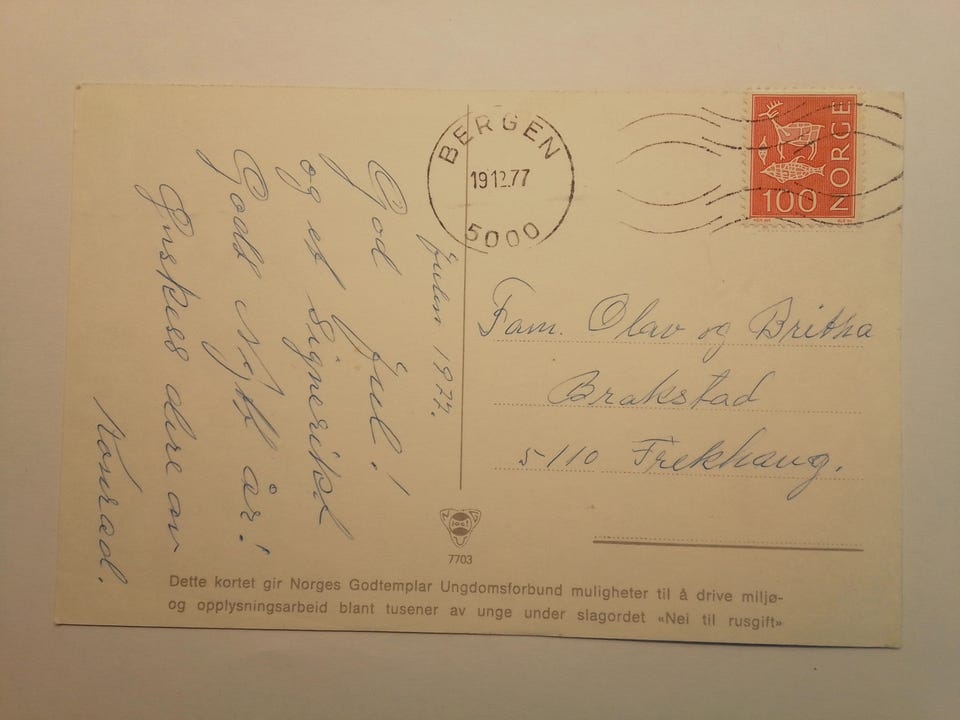 Julen 1977.
God Jul!
og et Signerikt
Godt Nytt år!
Ønskes dere av
Konrad.
BERGEN
19 12.77
5000
NORGE
100
Fam. Olav og Britha
Brakstad
5110 Frekhaug.
7703
Dette kortet gir Norges Godtemplar Ungdomsforbund muligheter til å drive miljø-
og opplysningsarbeid blant tusener av unge under slagordet «Nei til rusgift»